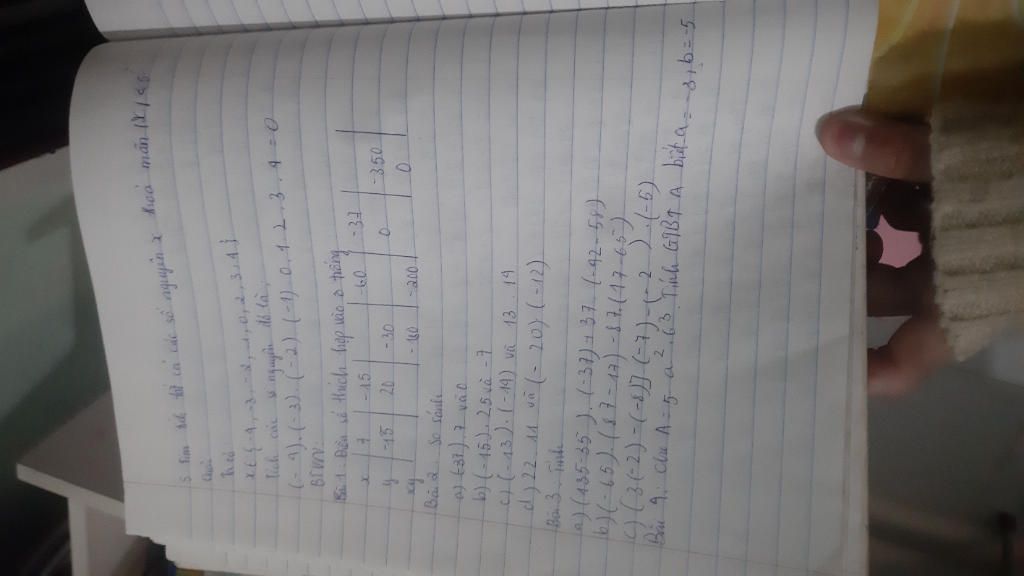 5. Tìm tích tất cả các số nguyên x thoả mãn |x| < 5
Giải
Ta có:
x ∈ {-4, -3, -2, -1, 0, 1, 2, 3, 4}
Tích các số nguyên đó là:
(-4).(-3).(-2).(-1).0.1.2.3.4 = 0
BTVN:
Bài 1. Điền số thích hợp vào ô trống
x | 7 | -15 | | 60 | -37 | |
y | -15 | 20 | -30 | | 0 | -350 |
xy | | | -180 | -200 | | 0 |
Bài 2. So sánh
a) (-37).7 và 0
b) (-15).25 và -7
c) (-13).(-19) và 13.19
d) 22.11 và (-20).(-12)
Bài 3. Tính
a) (135-35).(-37)+37.(-42-58)
b) (-65).(87-17)-87.(17-65)
c) [3(-2)-(-8)].(-7)-(-2).(-5)
Bài 4. Cho A = 5.a².b³. Tính GTBT A biết a = -3, b = -5